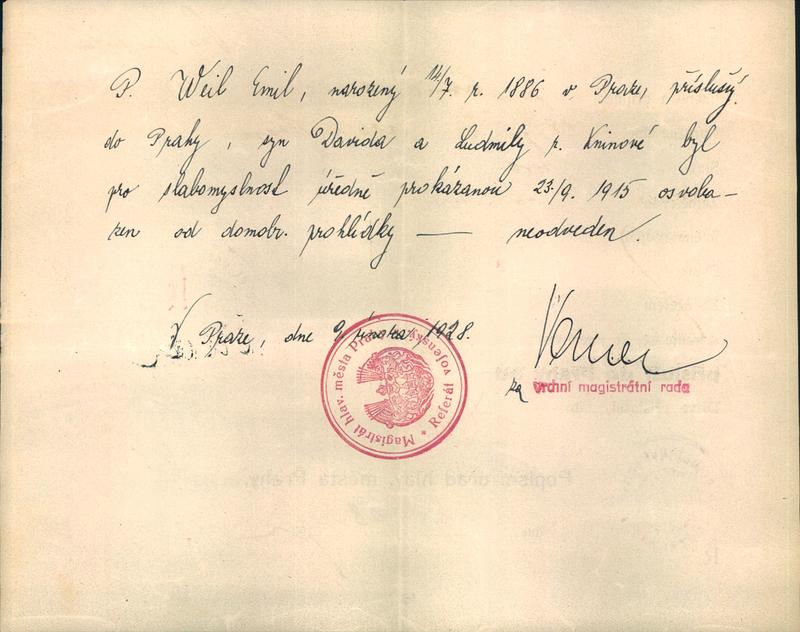 P. Weil Emil, narozený 14/7. r. 1886 v Praze, příslušý
do Prahy, syn Davida a Ludmily r. Kninové byl
pro slabomyslnost úředně prokázanou 23./9. 1915 osvobo-
zen od domobr. prohlídky — neodveden.
V Praze, dne 9. února 1928.
Magistrát hlav. města Prahy * Referát vojenský
za vrchní magistrátní rada
Popisní úřad hlav. města Prahy.